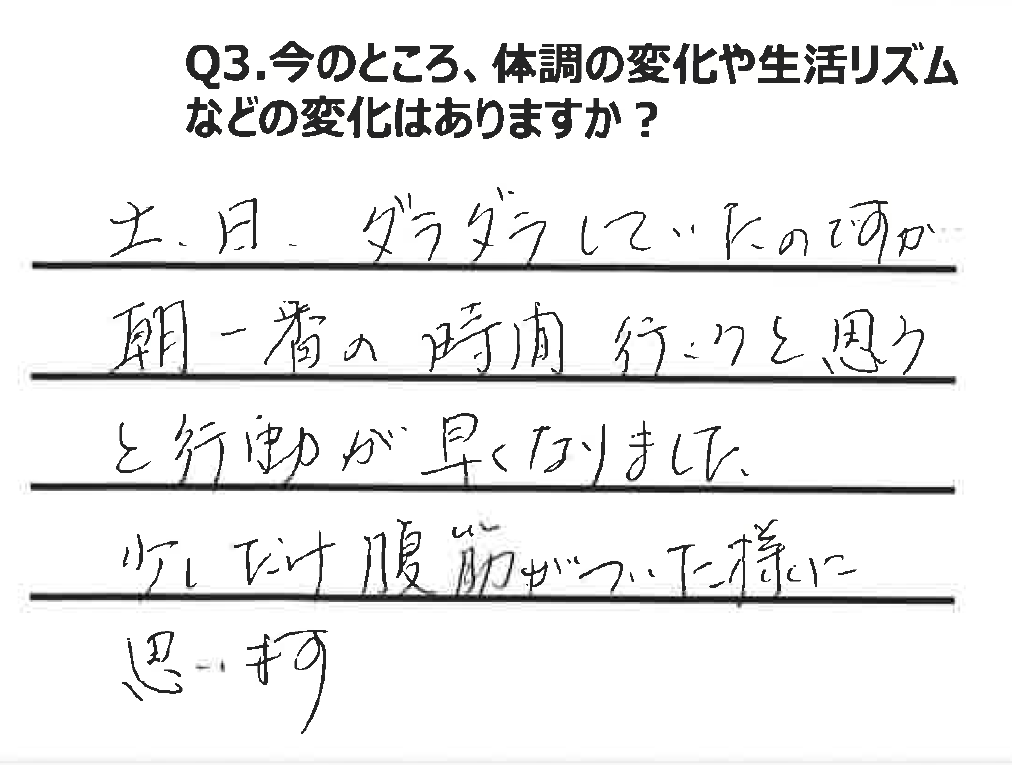 Q3.今のところ、体調の変化や生活リズム
などの変化はありますか？
土、日、ダラダラしていたのですが
朝一番の時間行こうと思う
と行動が早くなりました、
少しだけ腹筋がついた様に
思います